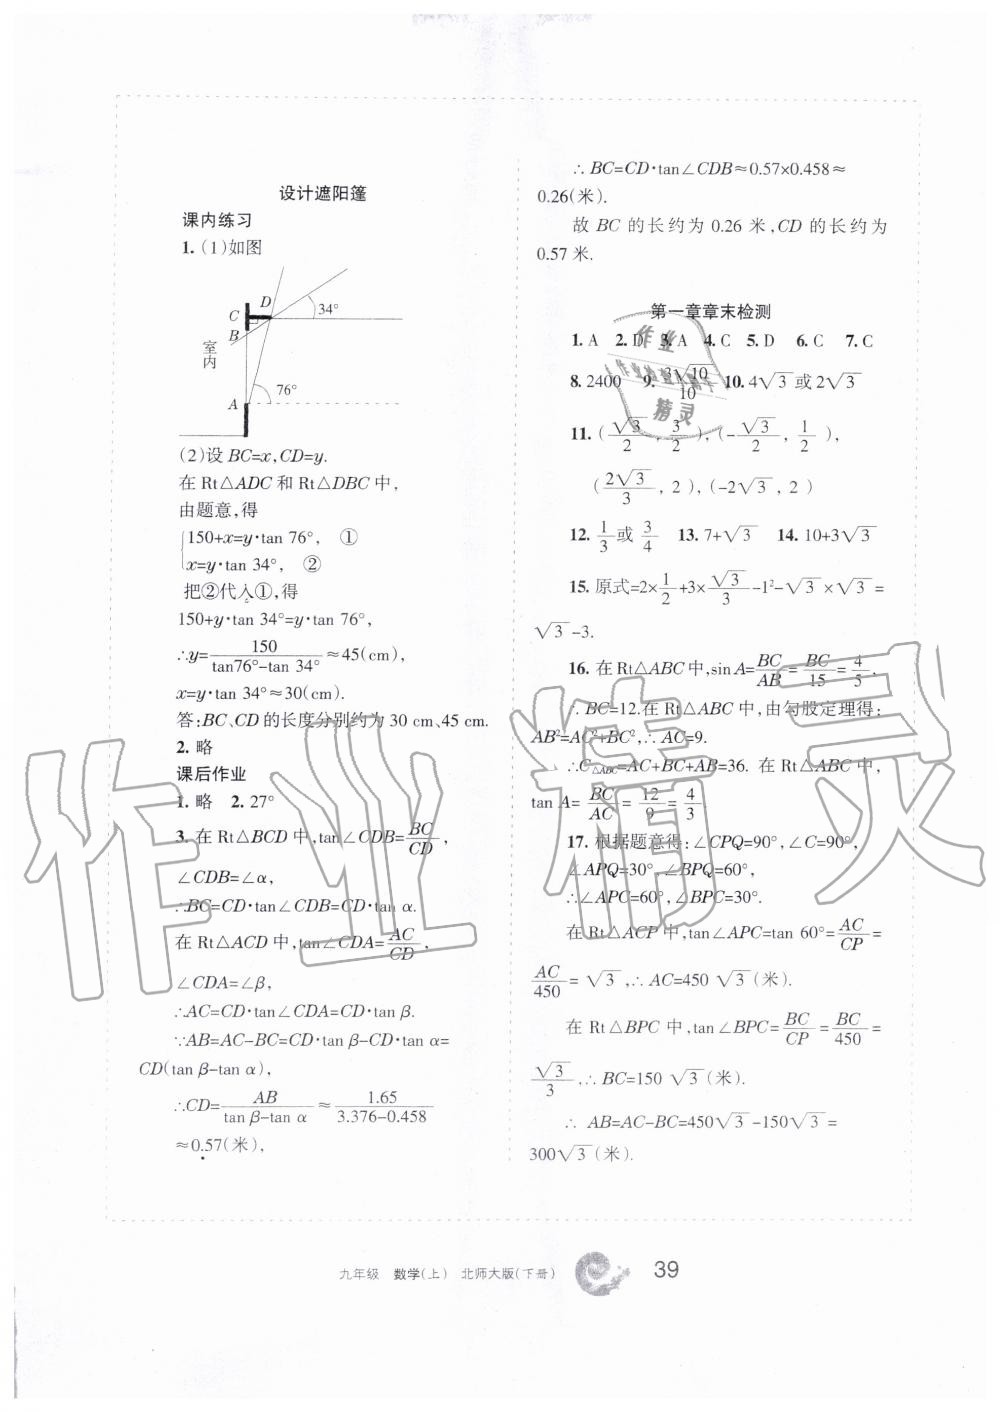 设计遮阳篷
课内练习
1. (1)如图
D
C
34°
B
室内
76°
A
(2)设 BC=x,CD=y.
在 Rt△ADC 和 Rt△DBC 中,
由题意,得
150+x=y·tan 76°, ①
x=y·tan 34°, ②
把②代入①,得
150+y·tan 34°=y·tan 76°,
∴y=150/(tan76°-tan 34°)≈45(cm),
x=y·tan 34°≈30(cm).
答:BC、CD的长度分别约为 30 cm、45 cm.
2. 略
课后作业
1. 略 2. 27°
3. 在 Rt△BCD 中,tan∠CDB=BC/CD,
∠CDB=∠α,
∴BC=CD·tan∠CDB=CD·tan α.
在 Rt△ACD 中,tan∠CDA=AC/CD,
∠CDA=∠β,
∴AC=CD·tan∠CDA=CD·tan β.
∵AB=AC-BC=CD·tan β-CD·tan α=
CD(tan β-tan α),
∴CD=AB/(tan β-tan α)≈1.65/(3.376-0.458)
≈0.57(米),
∴BC=CD·tan∠CDB≈0.57×0.458≈
0.26(米).
故 BC 的长约为 0.26 米,CD 的长约为
0.57 米.
第一章章末检测
1. A 2. D 3. A 4. C 5. D 6. C 7. C
8. 2400 9. 3√10/10 10. 4√3 或 2√3
11. (√3/2, 3/2), (-√3/2, 1/2),
(2√3/3, 2), (-2√3, 2)
12. 1/3 或 3/4 13. 7+√3 14. 10+3√3
15. 原式=2×1/2+3×√3/3-1²-√3×√3=
√3-3.
16. 在 Rt△ABC 中,sin A=BC/AB=BC/15=4/5,
∴BC=12.在 Rt△ABC 中,由勾股定理得:
AB²=AC²+BC²,∴AC=9.
∴C△ABC=AC+BC+AB=36. 在 Rt△ABC 中,
tan A=BC/AC=12/9=4/3.
17. 根据题意得:∠CPQ=90°,∠C=90°,
∠APQ=30°,∠BPQ=60°,
∴∠APC=60°,∠BPC=30°.
在 Rt△ACP 中,tan∠APC=tan 60°=AC/CP=
AC/450=√3,∴AC=450√3(米).
在 Rt△BPC 中,tan∠BPC=BC/CP=BC/450=
√3/3,∴BC=150√3(米).
∴AB=AC-BC=450√3-150√3=
300√3(米).
九年级 数学(上) 北师大版(下册) 39
作业精灵